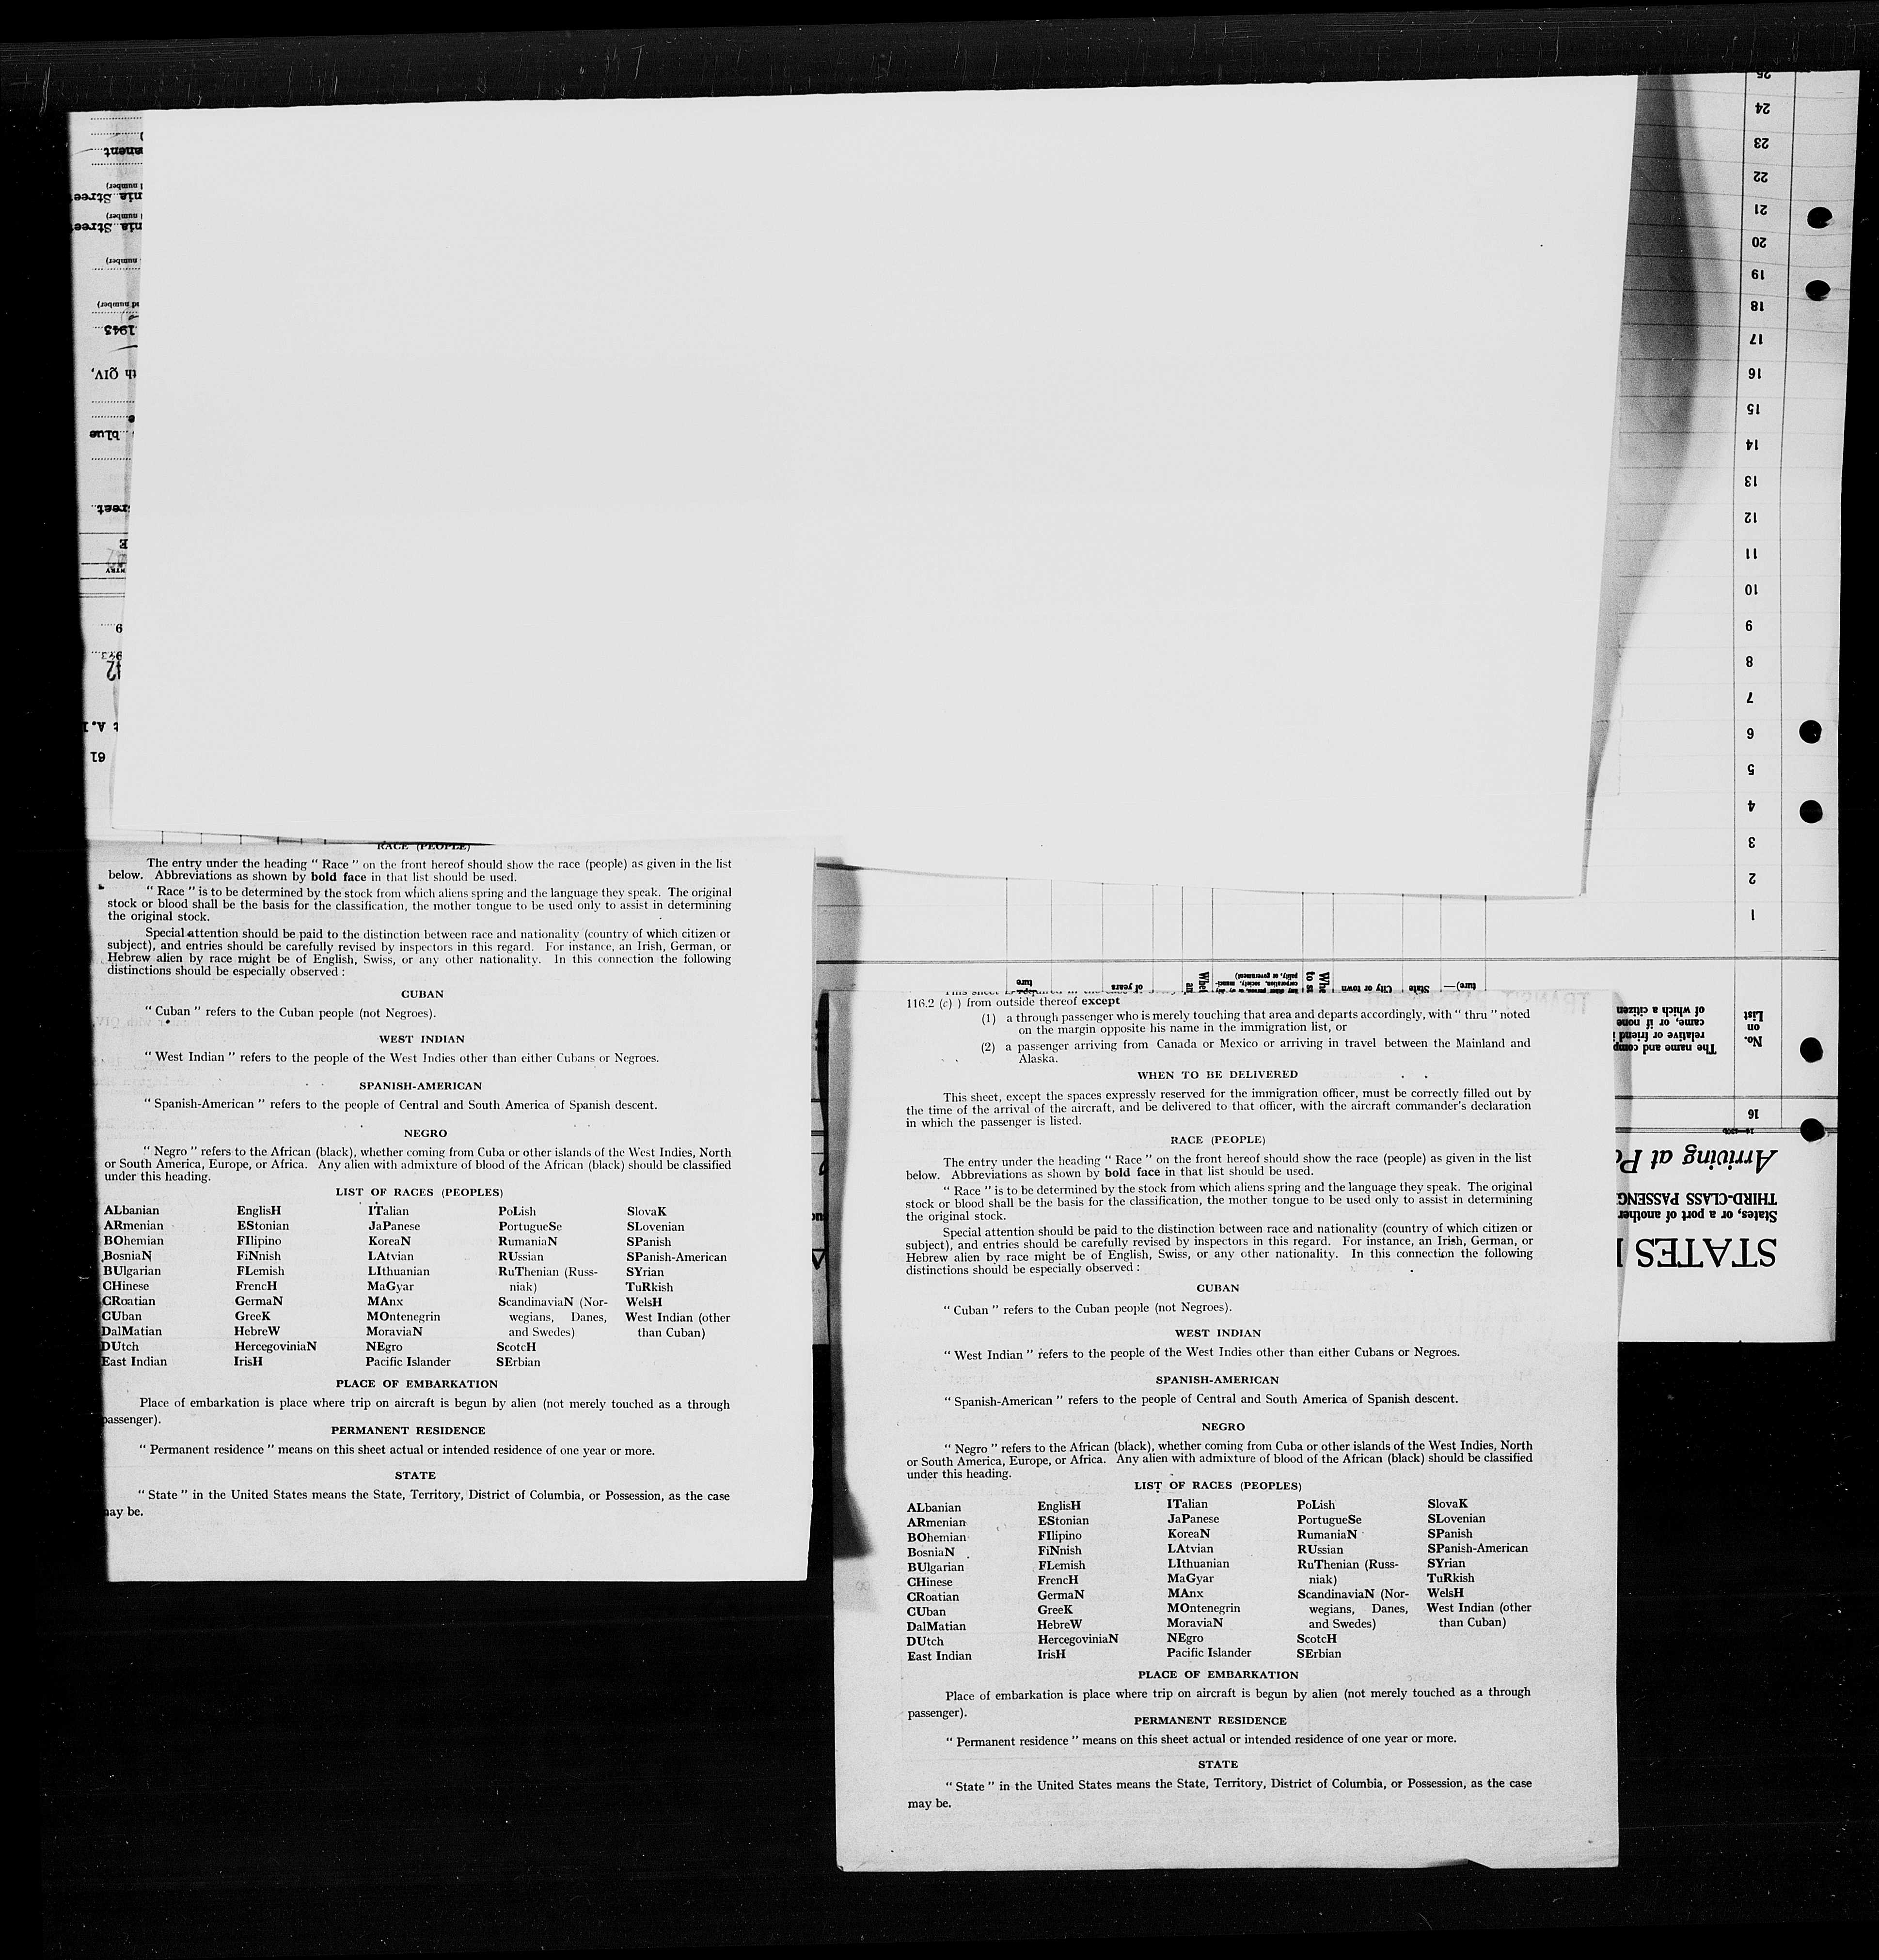 RACE (PEOPLE)
The entry under the heading " Race " on the front hereof should show the race (people) as given in the list
below. Abbreviations as shown by bold face in that list should be used.
" Race " is to be determined by the stock from which aliens spring and the language they speak. The original
stock or blood shall be the basis for the classification, the mother tongue to be used only to assist in determining
the original stock.
Special attention should be paid to the distinction between race and nationality (country of which citizen or
subject), and entries should be carefully revised by inspectors in this regard. For instance, an Irish, German, or
Hebrew alien by race might be of English, Swiss, or any other nationality. In this connection the following
distinctions should be especially observed :
CUBAN
" Cuban " refers to the Cuban people (not Negroes).
WEST INDIAN
" West Indian " refers to the people of the West Indies other than either Cubans or Negroes.
SPANISH-AMERICAN
" Spanish-American " refers to the people of Central and South America of Spanish descent.
NEGRO
" Negro " refers to the African (black), whether coming from Cuba or other islands of the West Indies, North
or South America, Europe, or Africa. Any alien with admixture of blood of the African (black) should be classified
under this heading.
LIST OF RACES (PEOPLES)
ALbanian EnglisH ITalian PoLish SlovaK
ARmenian EStonian JaPanese PortugueSe SLovenian
BOhemian FIlipino KoreaN RumaniaN SPanish
BosniaN FiNnish LAtvian RUssian SPanish-American
BUlgarian FLemish LIthuanian RuThenian (Russ- SYrian
CHinese FrencH MaGyar niak) TuRkish
CRoatian GermaN MAnx ScandinaviaN (Nor- WelsH
CUban GreeK MOntenegrin wegians, Danes, West Indian (other
DalMatian HebreW MoraviaN and Swedes) than Cuban)
DUtch HercegoviniaN NEgro ScotcH
East Indian IrisH Pacific Islander SErbian
PLACE OF EMBARKATION
Place of embarkation is place where trip on aircraft is begun by alien (not merely touched as a through
passenger).
PERMANENT RESIDENCE
" Permanent residence " means on this sheet actual or intended residence of one year or more.
STATE
" State " in the United States means the State, Territory, District of Columbia, or Possession, as the case
may be.
116.2 (c) ) from outside thereof except
(1) a through passenger who is merely touching that area and departs accordingly, with " thru " noted
on the margin opposite his name in the immigration list, or
(2) a passenger arriving from Canada or Mexico or arriving in travel between the Mainland and
Alaska.
WHEN TO BE DELIVERED
This sheet, except the spaces expressly reserved for the immigration officer, must be correctly filled out by
the time of the arrival of the aircraft, and be delivered to that officer, with the aircraft commander's declaration
in which the passenger is listed.
RACE (PEOPLE)
The entry under the heading " Race " on the front hereof should show the race (people) as given in the list
below. Abbreviations as shown by bold face in that list should be used.
" Race " is to be determined by the stock from which aliens spring and the language they speak. The original
stock or blood shall be the basis for the classification, the mother tongue to be used only to assist in determining
the original stock.
Special attention should be paid to the distinction between race and nationality (country of which citizen or
subject), and entries should be carefully revised by inspectors in this regard. For instance, an Irish, German, or
Hebrew alien by race might be of English, Swiss, or any other nationality. In this connection the following
distinctions should be especially observed :
CUBAN
" Cuban " refers to the Cuban people (not Negroes).
WEST INDIAN
" West Indian " refers to the people of the West Indies other than either Cubans or Negroes.
SPANISH-AMERICAN
" Spanish-American " refers to the people of Central and South America of Spanish descent.
NEGRO
" Negro " refers to the African (black), whether coming from Cuba or other islands of the West Indies, North
or South America, Europe, or Africa. Any alien with admixture of blood of the African (black) should be classified
under this heading.
LIST OF RACES (PEOPLES)
ALbanian EnglisH ITalian PoLish SlovaK
ARmenian EStonian JaPanese PortugueSe SLovenian
BOhemian FIlipino KoreaN RumaniaN SPanish
BosniaN FiNnish LAtvian RUssian SPanish-American
BUlgarian FLemish LIthuanian RuThenian (Russ- SYrian
CHinese FrencH MaGyar niak) TuRkish
CRoatian GermaN MAnx ScandinaviaN (Nor- WelsH
CUban GreeK MOntenegrin wegians, Danes, West Indian (other
DalMatian HebreW MoraviaN and Swedes) than Cuban)
DUtch HercegoviniaN NEgro ScotcH
East Indian IrisH Pacific Islander SErbian
PLACE OF EMBARKATION
Place of embarkation is place where trip on aircraft is begun by alien (not merely touched as a through
passenger).
PERMANENT RESIDENCE
" Permanent residence " means on this sheet actual or intended residence of one year or more.
STATE
" State " in the United States means the State, Territory, District of Columbia, or Possession, as the case
may be.
STATES
States, or a port of another
THIRD-CLASS PASSENG
Arriving at Po
16
No.
on
List
The name and comp
relative or friend
came, or if none
of which a citizen
State
City or town
of years
1
2
3
4
5
6
7
8
9
10
11
12
13
14
15
16
17
18
19
20
21
22
23
24
25
61
blue
th QIV,
1943
number)
nia Street
number)
nia Street
number)